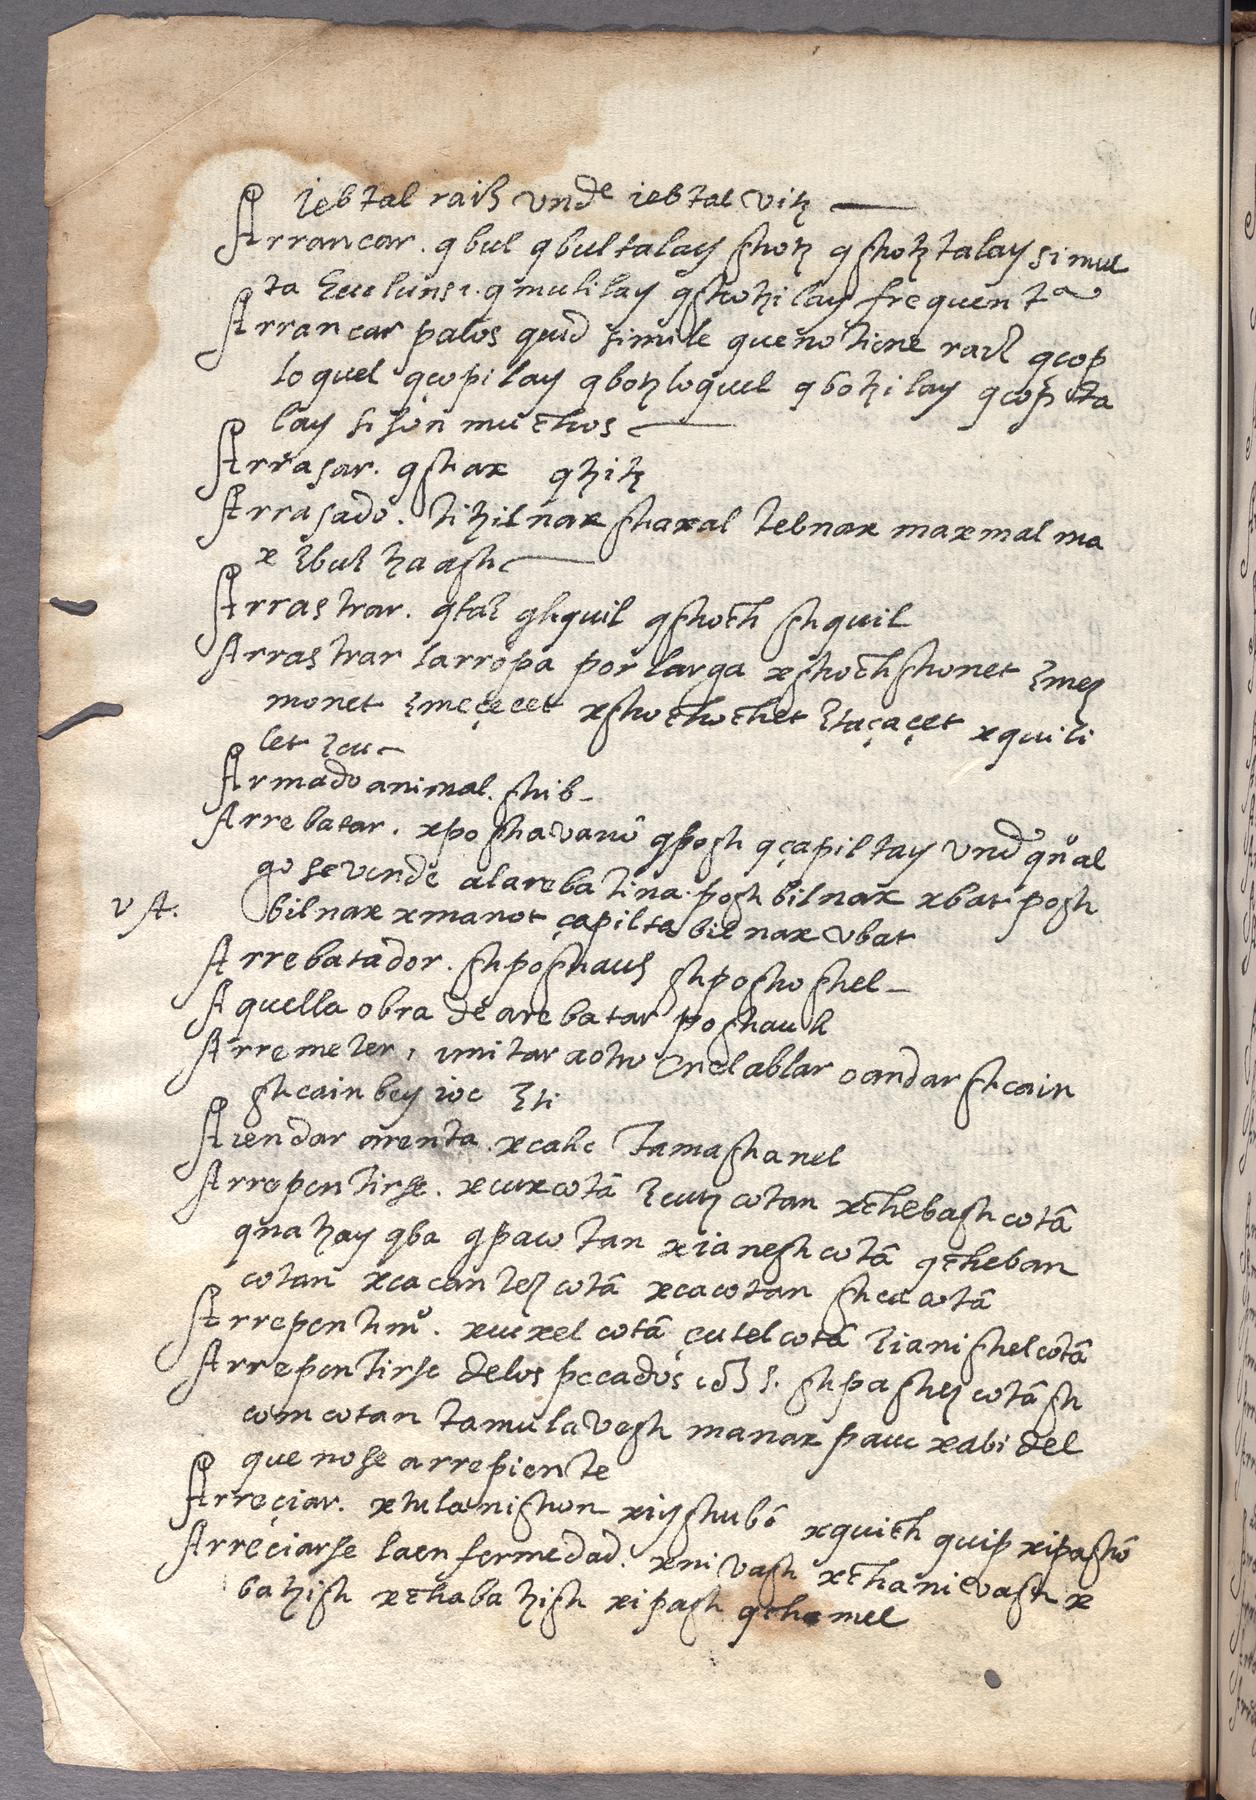 iebtal raiz vnde iebtal vitz
Arrancar. qbul qbultalay shotz qshotztalay simul
ta euolunsi. qmulilay qshotzilay frequenta
Arrancar palos quid simile que no tiene raiz qcop
loquel qcopilay qbotzloquel qbotzilay qcopilta
lay si son muchos
Arrasar. qshax qtzitz
Arrasado. titzilnax shaxal lebnax maxmal ma
x ꜫbul tzaash
Arrastrar. qtaꜫ shquil qshoch shquil
Arrastrar la rropa por larga xshochshonet ꜫmeꜫ
monet ꜫmeçeet xshochochet ꜫtaçaçet xquili
let ꜫcu
Armado animal. shib
Arrebatar. xposhavanõ qposh qçapiltay vnde qnº al
go se vende ala rebatina. poshbilnax xbat posh
v A. bilnax xmanot çapiltabilnax vbat
Arrebatador. shposhauꜫ shposhoshel
Aquella obra de arebatar poshauꜫ
Arremeter, imitar a otro en el ablar o andar shcain
shcainbey ioc ꜫti
Arendar a renta. xcahc tamashanel
Arrepentirse. xcuxcotã ꜫcutz cotan xchebash cotã
qnatzay qba qpacotan xianesh cotã qcheban
cotan xcacanteꜫ cotã xcacotan shca cotã
Arrepentimº. xuixel cotã çutel cotã ꜫianishel cotã
Arrepentirse delos peccados shpasheꜫ cotã sh
com cotan tamulavesh manax pauc xabi del
que no se arrepiente
Arreçiar. xtulanishon xiyshubõ xquich quip xipashõ
Arreçiarse la enfermedad. xnivash xchanievash x
batzish xchabatzish xipash qchamel